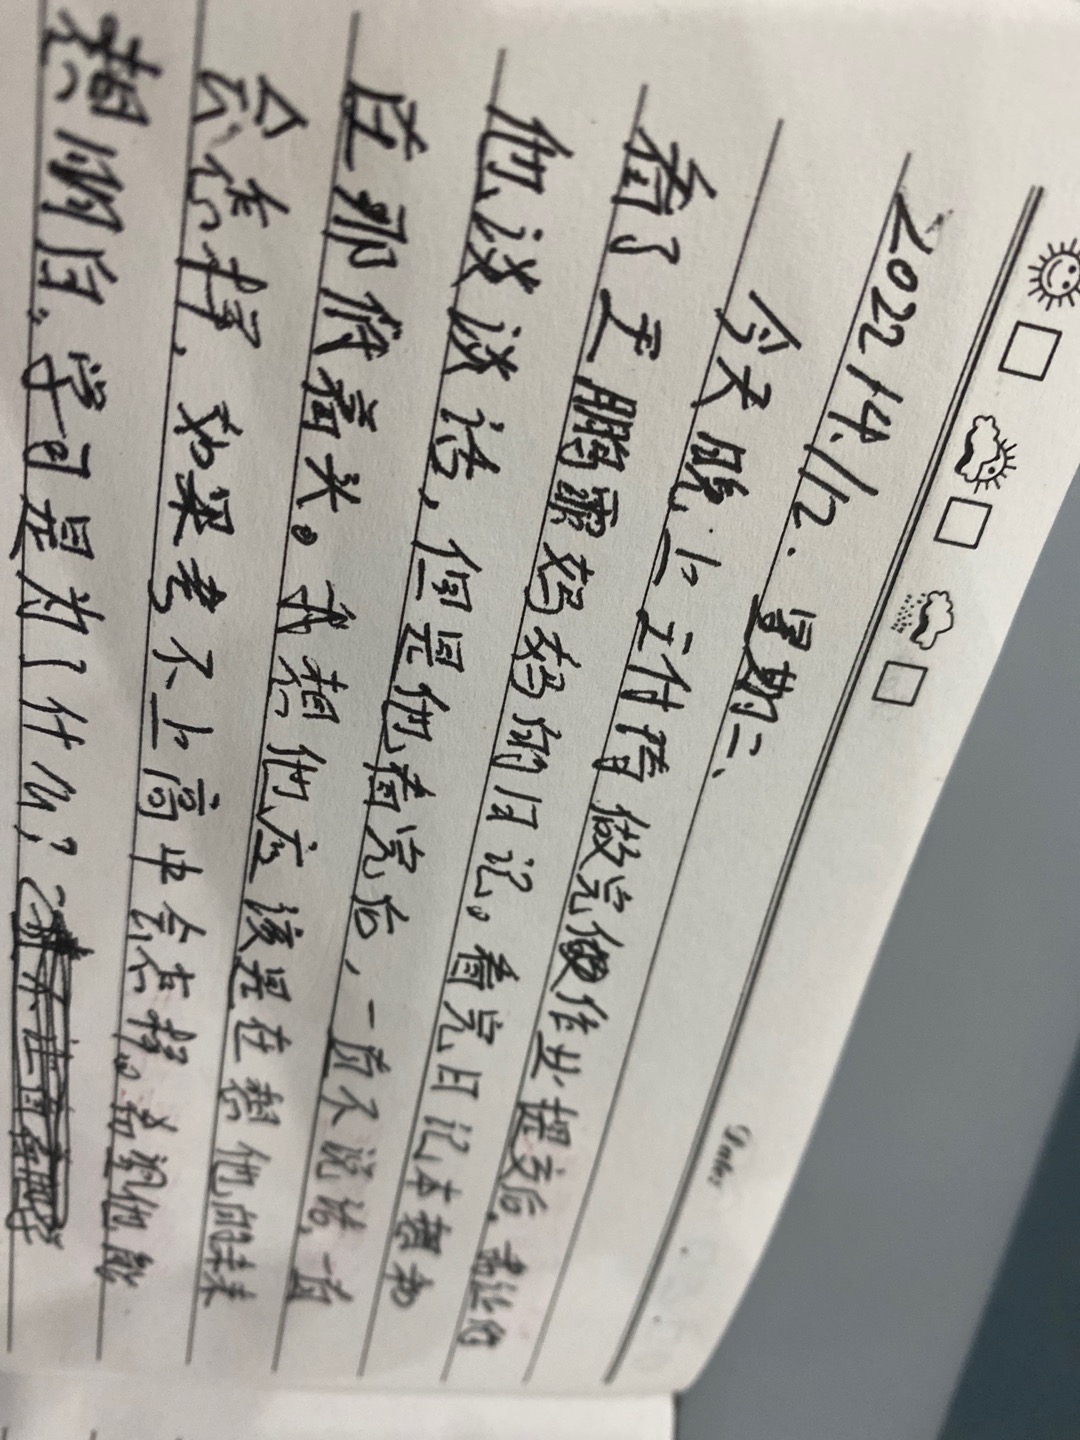 2022/4./12. 星期二、
今天晚上计时做完做作业提交后, 就让他
看了王鹏飞妈妈的日记。看完日记本想和
他谈谈话, 但是他看完后, 一直不说话, 一直
在那仰着头。我想他应该是在想他的未来
会怎样, 如果考不上高中会怎样。希望他能
想明白、学习是为了什么?
Date: